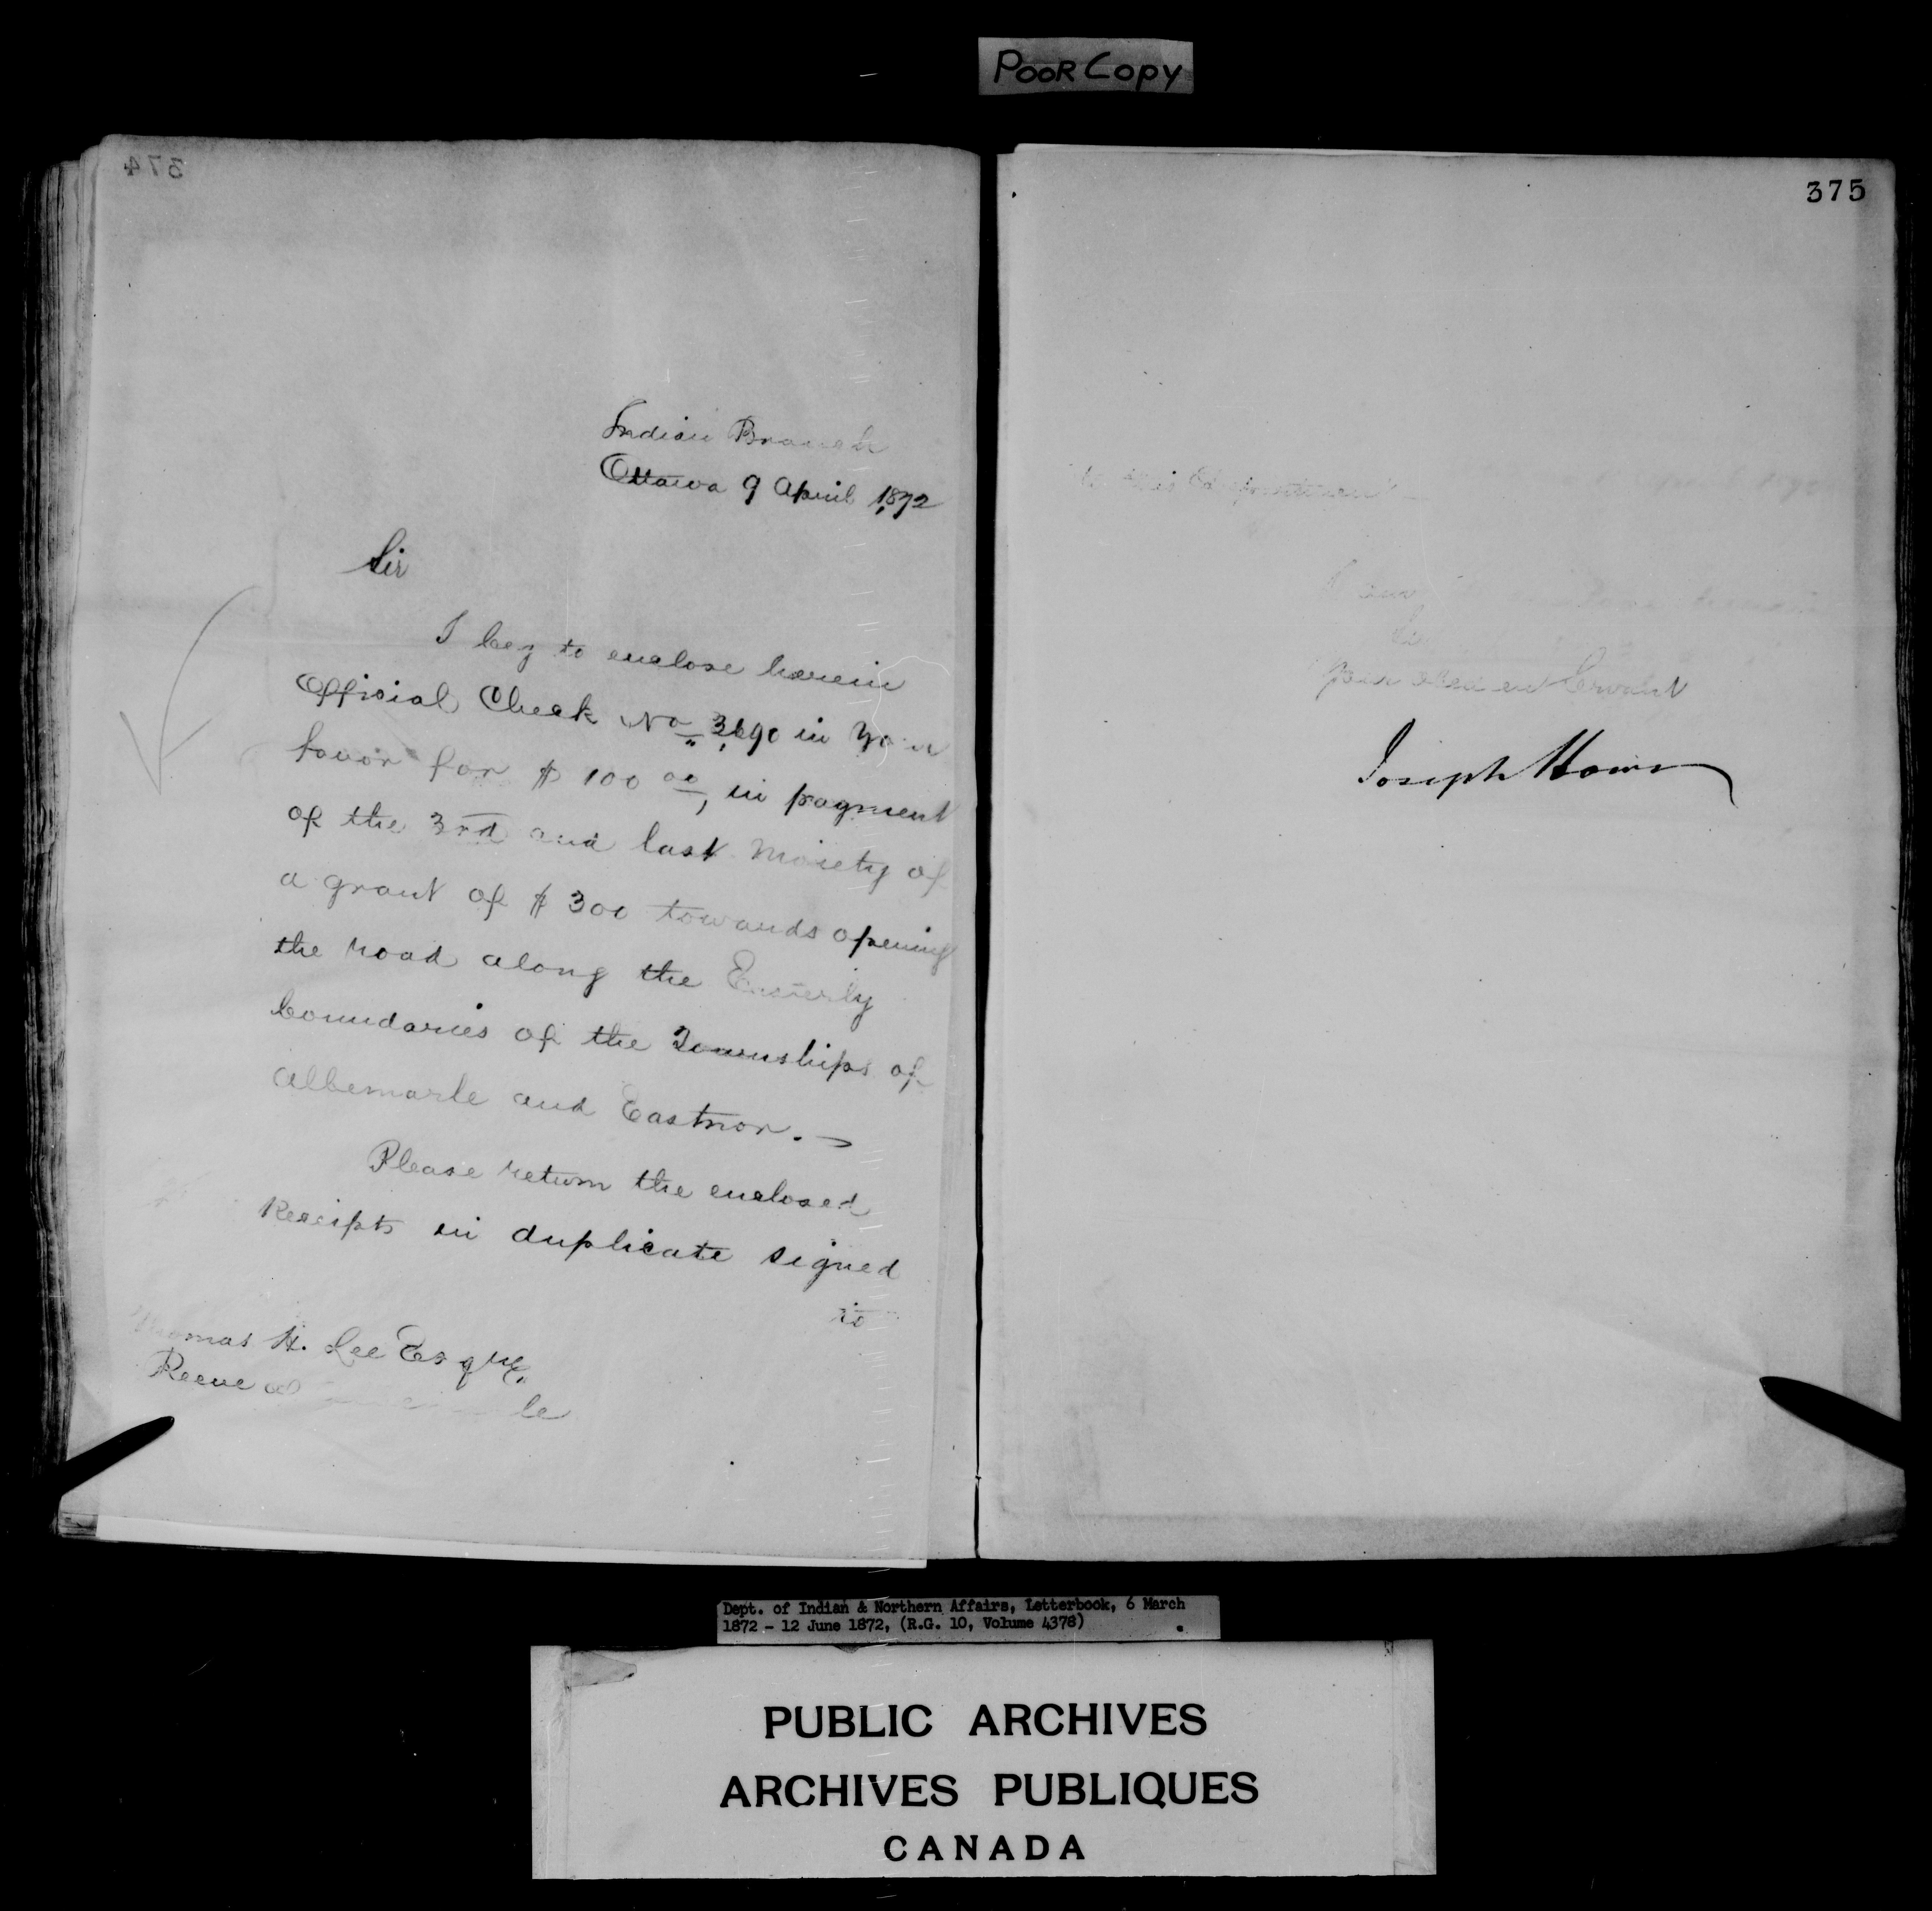 POOR COPY
374
Indian Branch
Ottawa 9 April 1872
Sir
I beg to enclose herein
Official Check No 3,690 in your
favor for $100 00, in payment
of the 3rd and last Moiety of
a grant of $300 towards opening
the road along the Easterly
boundaries of the Townships of
Albemarle and Eastnor. —
Please return the enclosed
Receipts in duplicate signed
to
Thomas H. Lee Esqre.
Reeve
375
to this Department —
Sir
your obedient Servant
Joseph Howe
Dept. of Indian & Northern Affairs, Letterbook, 6 March
1872 - 12 June 1872, (R.G. 10, Volume 4378)
PUBLIC ARCHIVES
ARCHIVES PUBLIQUES
CANADA